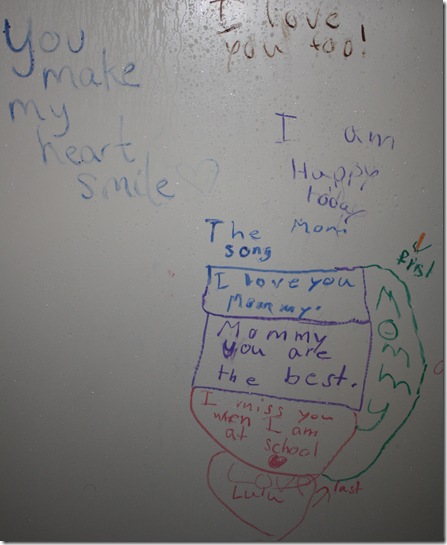 You
make
my
heart
smile
I love
you too!
I am
Happy
today
Mom
The
song
first
I love you
Mommy.
Mommy
you are
the best.
I miss you
when I am
at school
MOMMY
Love
Lulu
last